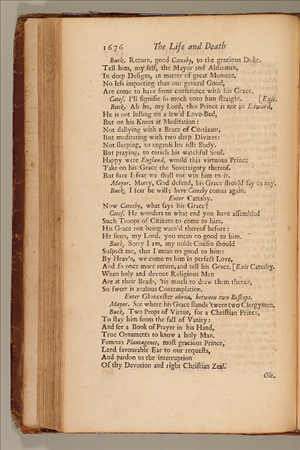 1676 The Life and Death
Buck. Return, good Catesby, to the gracious Duke.
Tell him, my self, the Mayor and Aldermen,
In deep Designs, in matter of great Moment,
No less importing than our general Good,
Are come to have some conference with his Grace.
Cates. I'll signifie so much unto him straight. [Exit.
Buck. Ah ha, my Lord, this Prince is not an Edward,
He is not lulling on a lewd Love-Bed,
But on his Knees at Meditation:
Not dallying with a Brace of Curtizans,
But meditating with two deep Divines:
Not sleeping, to engross his idle Body,
But praying, to enrich his watchful Soul.
Happy were England, would this virtuous Prince
Take on his Grace the Soveraignty thereof.
But sure I fear we shall not win him to it.
Mayor. Marry, God defend, his Grace should say us nay.
Buck. I fear he will; here Catesby comes again.
Enter Catesby.
Now Catesby, what says his Grace?
Cates. He wonders to what end you have assembled
Such Troops of Citizens to come to him,
His Grace not being warn'd thereof before:
He fears, my Lord, you mean no good to him.
Buck. Sorry I am, my noble Cousin should
Suspect me, that I mean no good to him:
By Heav'n, we come to him in perfect Love,
And so once more return, and tell his Grace. [Exit Catesby.
When holy and devout Religious Men
Are at their Beads, 'tis much to draw them thence,
So sweet is zealous Contemplation.
Enter Gloucester above, between two Bishops.
Mayor. See where his Grace stands 'tween two Clergymen.
Buck. Two Props of Virtue, for a Christian Prince,
To stay him from the fall of Vanity:
And see a Book of Prayer in his Hand,
True Ornaments to know a holy Man.
Famous Plantagenet, most gracious Prince,
Lend favourable Ear to our requests,
And pardon us the interruption
Of thy Devotion and right Christian Zeal.
Glo.